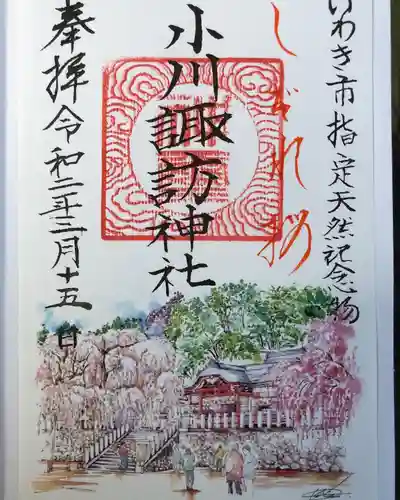 いわき市指定天然記念物
しだれ桜
小川諏訪神社
奉拝令和二年三月十五日